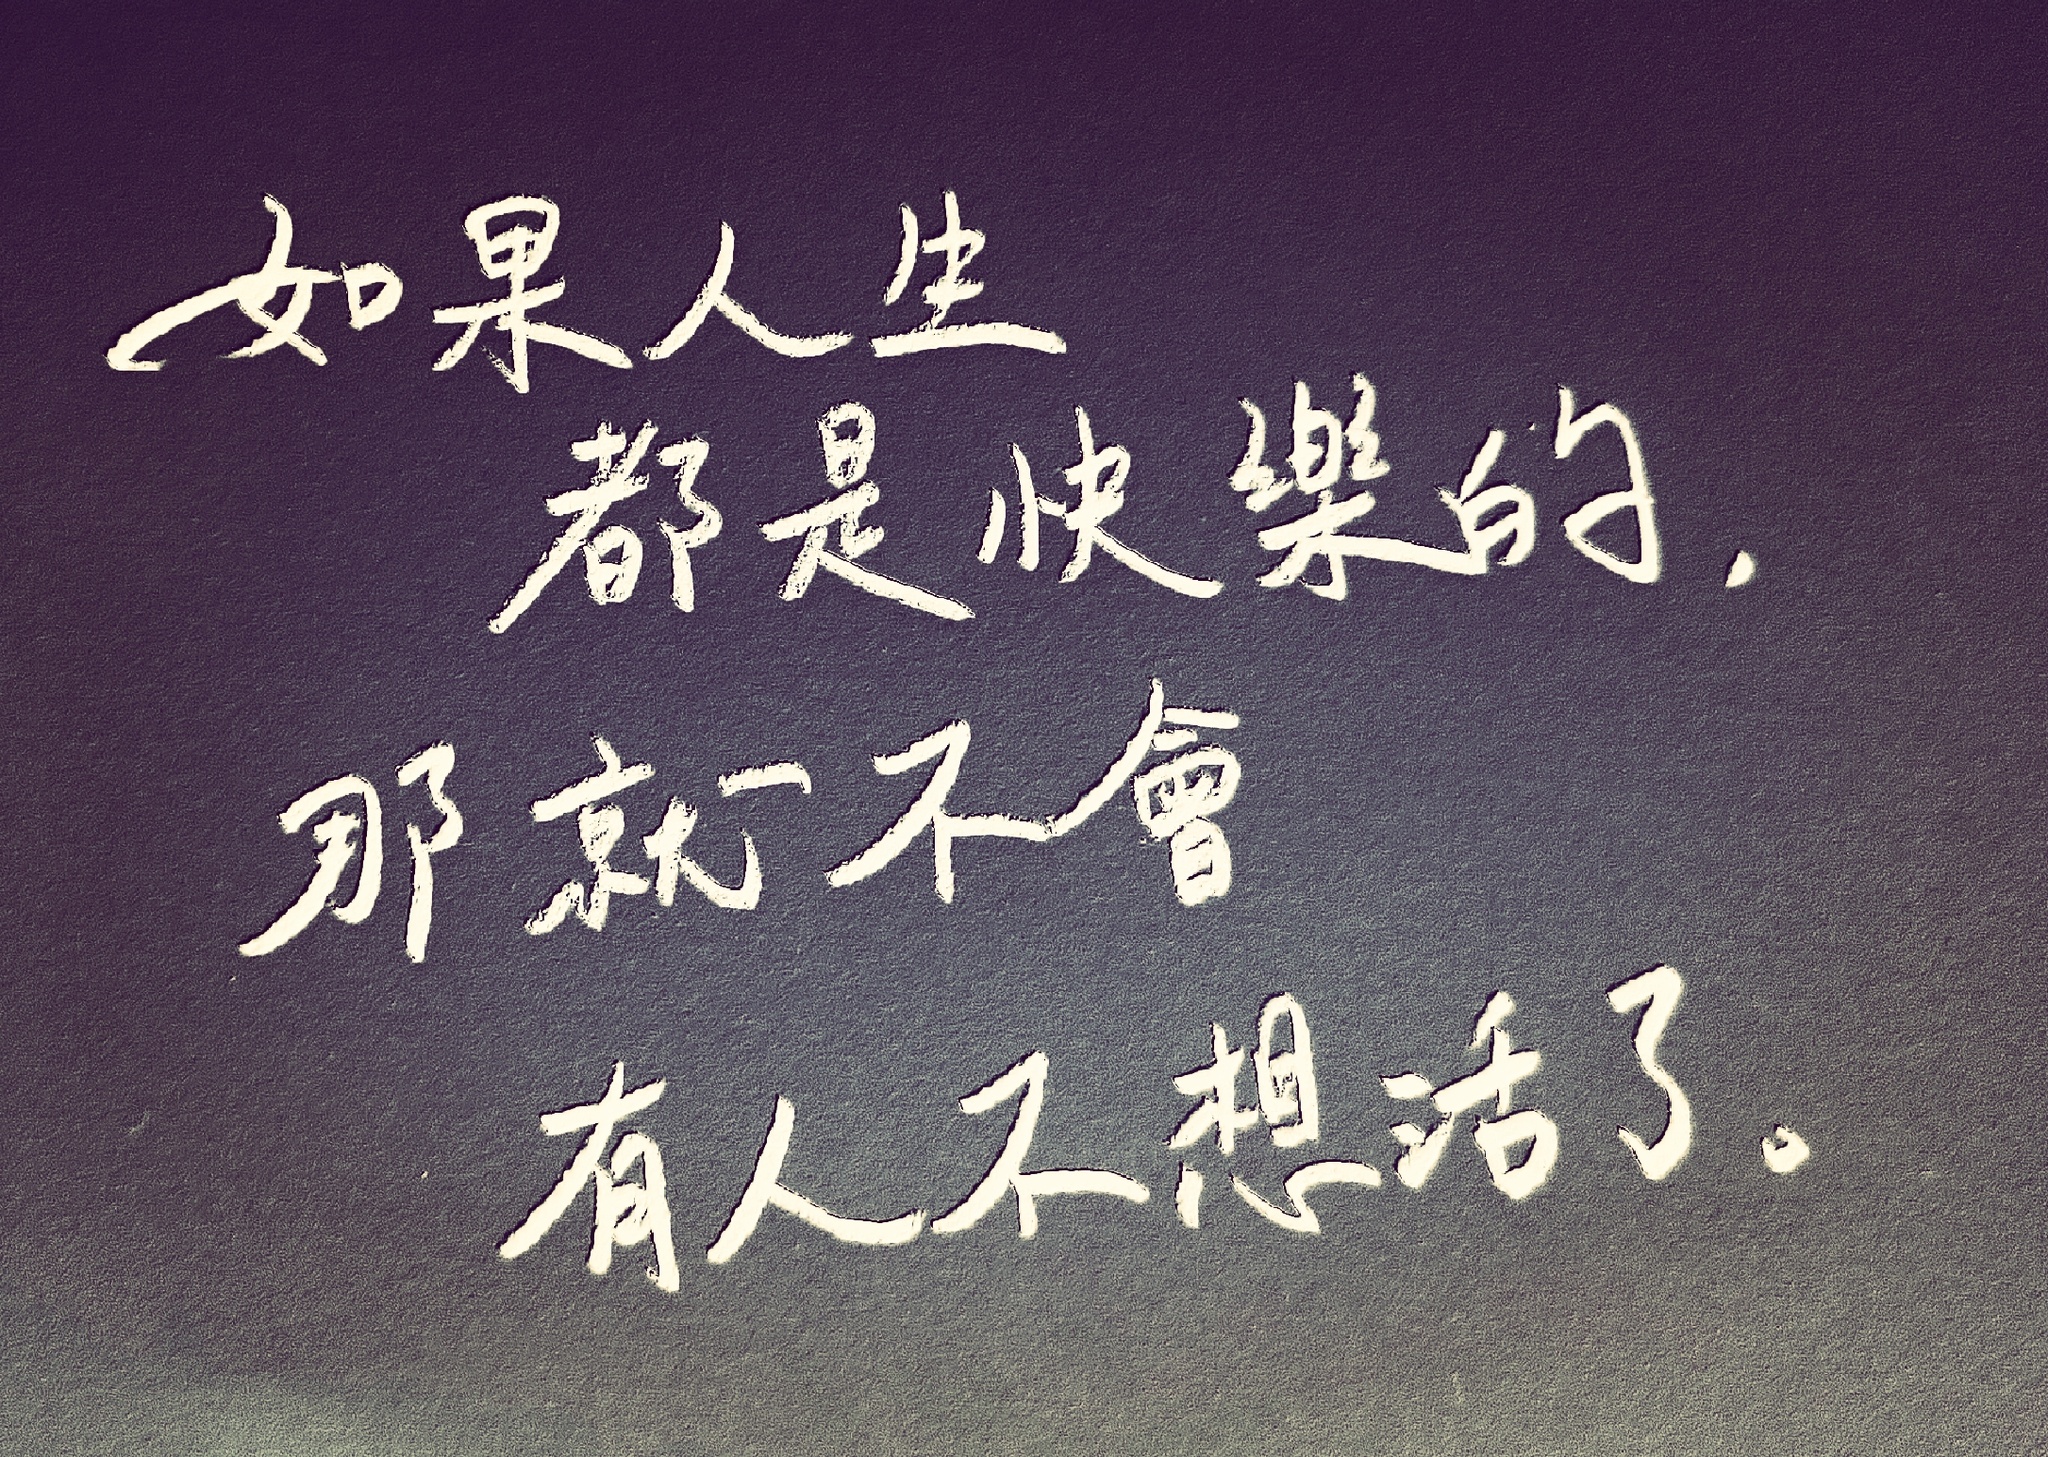 如果人生
都是快樂的,
那就不會
有人不想活了。